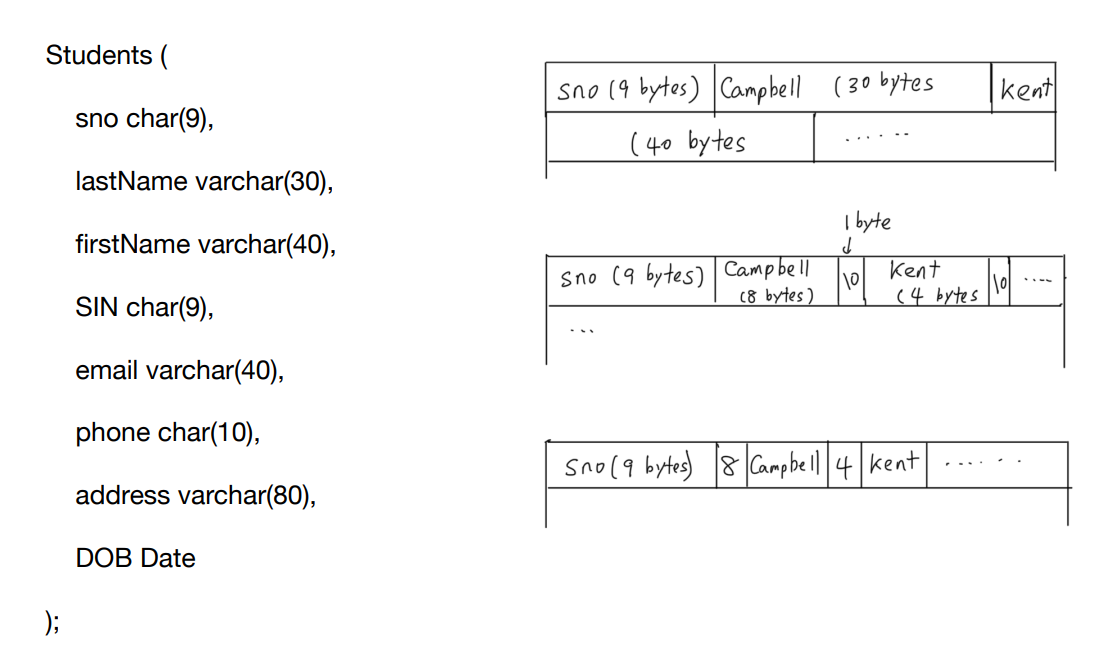 Students (
sno char(9),
lastName varchar(30),
firstName varchar(40),
SIN char(9),
email varchar(40),
phone char(10),
address varchar(80),
DOB Date
);
sno (9 bytes) Campbell (30 bytes kent
(40 bytes ......
1 byte
sno (9 bytes) Campbell (8 bytes) \0 kent (4 bytes \0 ....
...
sno (9 bytes) 8 Campbell 4 kent ......